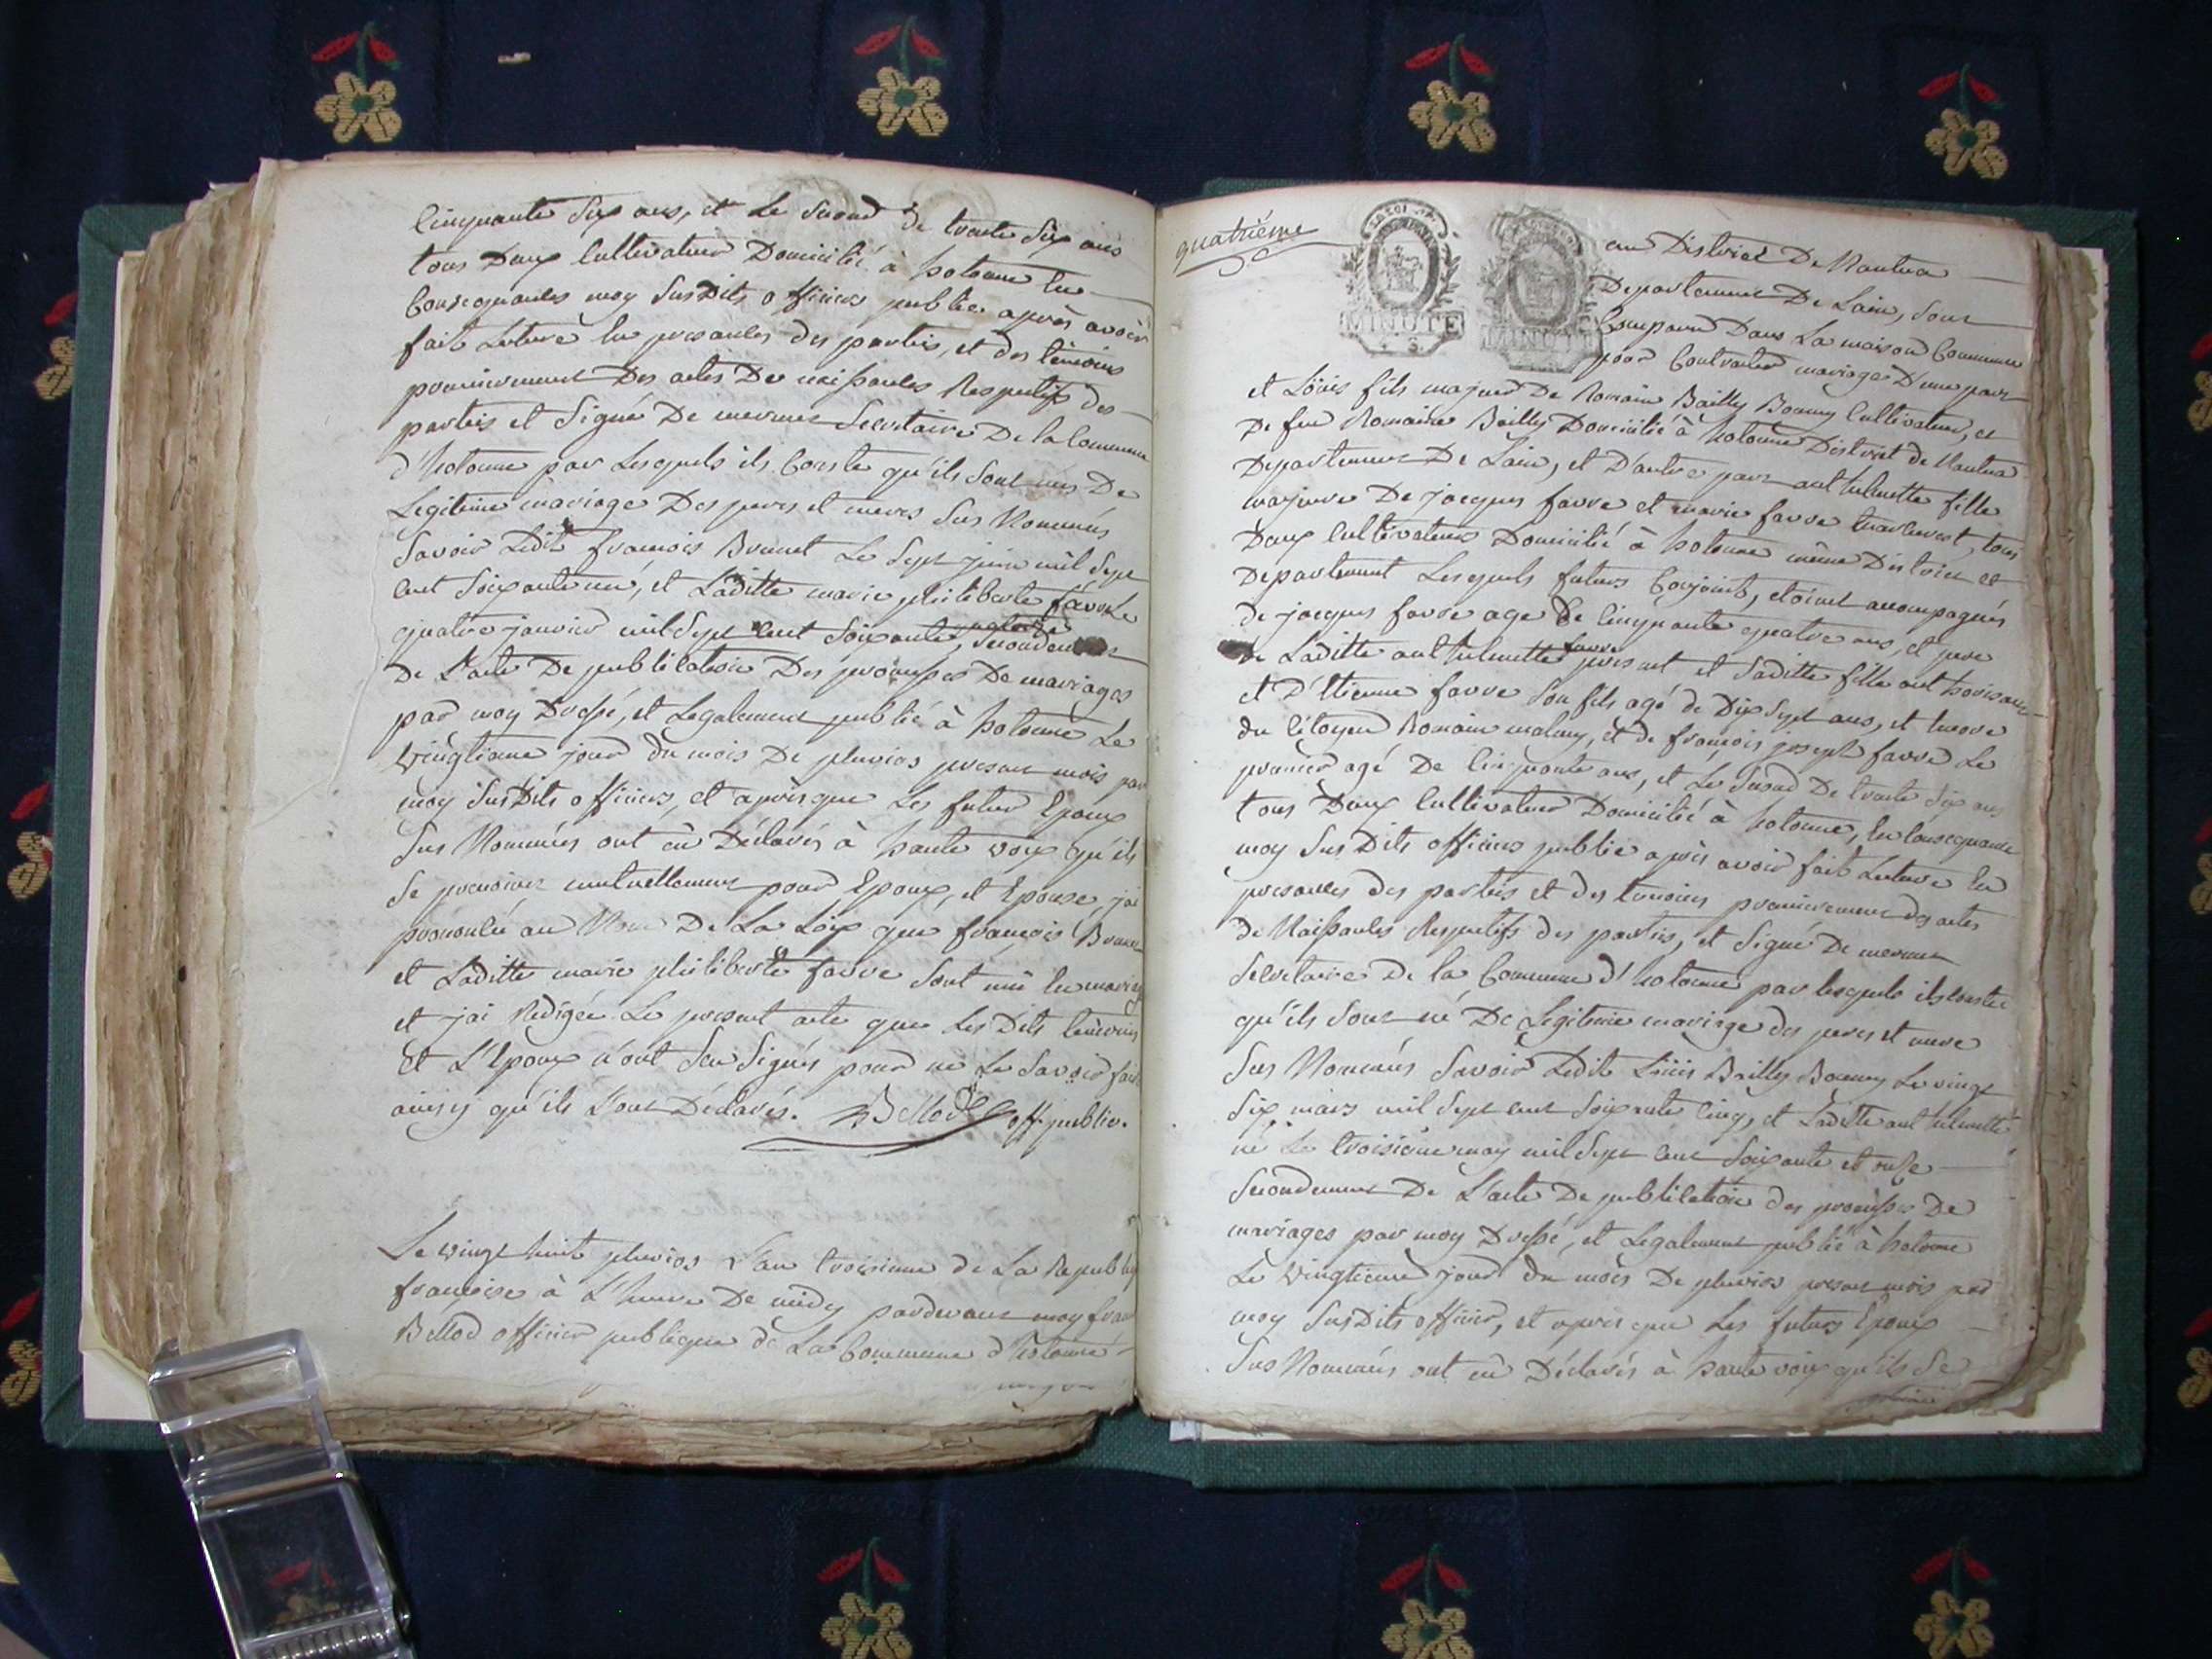 Cinquante Six ans, et Le Second de trante Six ans
tous Deux Cultivateur Domicilié à hotonne En
Consequances moy Sus Dits officiers public après avoir
fait Lecture En presances des parties, et des temoins
premierement Des actes De naissances Respectifs des
parties et Signé De mermet Secretaire De la Commune
d'hotonne par Lesquels ils Conste qu'ils Sont nés De
Legitime mariage Des peres et meres Sus Nommés
Savoir Ledit françois Brunet Le Sept juin mil Sept
cent Soixante un, et Laditte marie philiberte favre Le
quatre janvier mil Sept Cent Soixante quatorze Secondement
de L'acte De publication Des promesses De mariages
par moy Dressé, et Legalement publié à hotonne Le
vingtieme jour du mois De pluvios present mois par
moy Sus Dits officiers, et après que Les futur Epoux
Sus Nommés ont eû Déclarés à haute voix qu'ils
Se prenoient mutuellement pour Epoux, et Epouse, j'ai
prononcée au Nom De La Loix que françois Brunet
et Laditte marie philiberte favre Sont unis En mariage
et j'ai Redigée Le present acte que Les Dits temoins
et L'Epoux n'ont Sçu Signés pour ne Le Savoir faire
ainsy qu'ils L'ont Déclarés. Bellod off. public.
Le vingt huit pluvios L'an troisieme de La Republiq
françoise à L'heure De midy pardevant moy fran
Bellod officier publique de La Commune d'hotonne
quatriéme
MINUTE
MINUTE
au District De Nantua
Departement De Lain, Sont
Comparus Dans La maison Commune
pour Contracter mariage D'une part
et Loüis fils majeur De Romain Bailly Bonmy Cultivateur, et
De feu Romaine Bailly Domicilié à hotonne District de Nantua
Departement De Lain, et D'autre part anthelmette fille
majeure De jacques favre et marie favre tous
Deux Cultivateurs Domicilié à hotonne même District et
Departement Lesquels futurs Conjoints, étoient accompagnés
de jacques favre age de Cinquante quatre ans, et pere
de Laditte anthelmette favre present et Saditte fille
et D'Etienne favre Son fils agé de Dix Sept ans, et
du Citoyen Romain, et de françois joseph favre Le
premier agé De Cinquante ans, et Le Second De trante Six ans
tous Deux Cultivateur Domicilié à hotonne, En Consequance
moy Sus Dits officiers public après avoir fait Lecture En
presances des parties et des temoins premierement des actes
de Naissances Respectifs des parties, et Signé De mermet
Secretaire De la Commune d'hotonne par lesquels ils conste
qu'ils Sont né De Legitime mariage des peres et mere
Sus Nommés Savoir Ledit Loüis Bailly Bonmy Le vingt
Six mars mil Sept cent Soixante cinq, et Laditte anthelmette
né Le troisieme may mil Sept cent Soixante et onze
Secondement De L'acte De publication des promesses De
mariages par moy Dressé, et Legalement publié à hotonne
Le vingtieme jour du mois De pluvios present mois par
moy Sus Dits officier, et après que Les futurs Epoux
Sus Nommés ont eû Déclarés à haute voix qu'ils Se